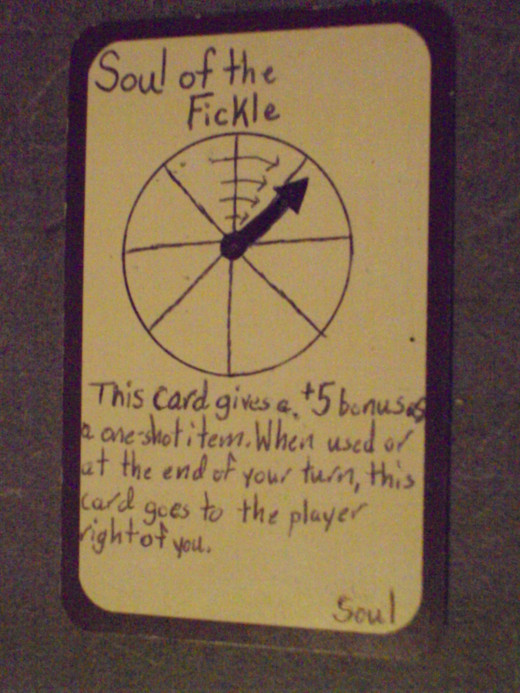 Soul of the
Fickle
This card gives a +5 bonus as
a one-shot item. When used or
at the end of your turn, this
card goes to the player
right of you.
Soul